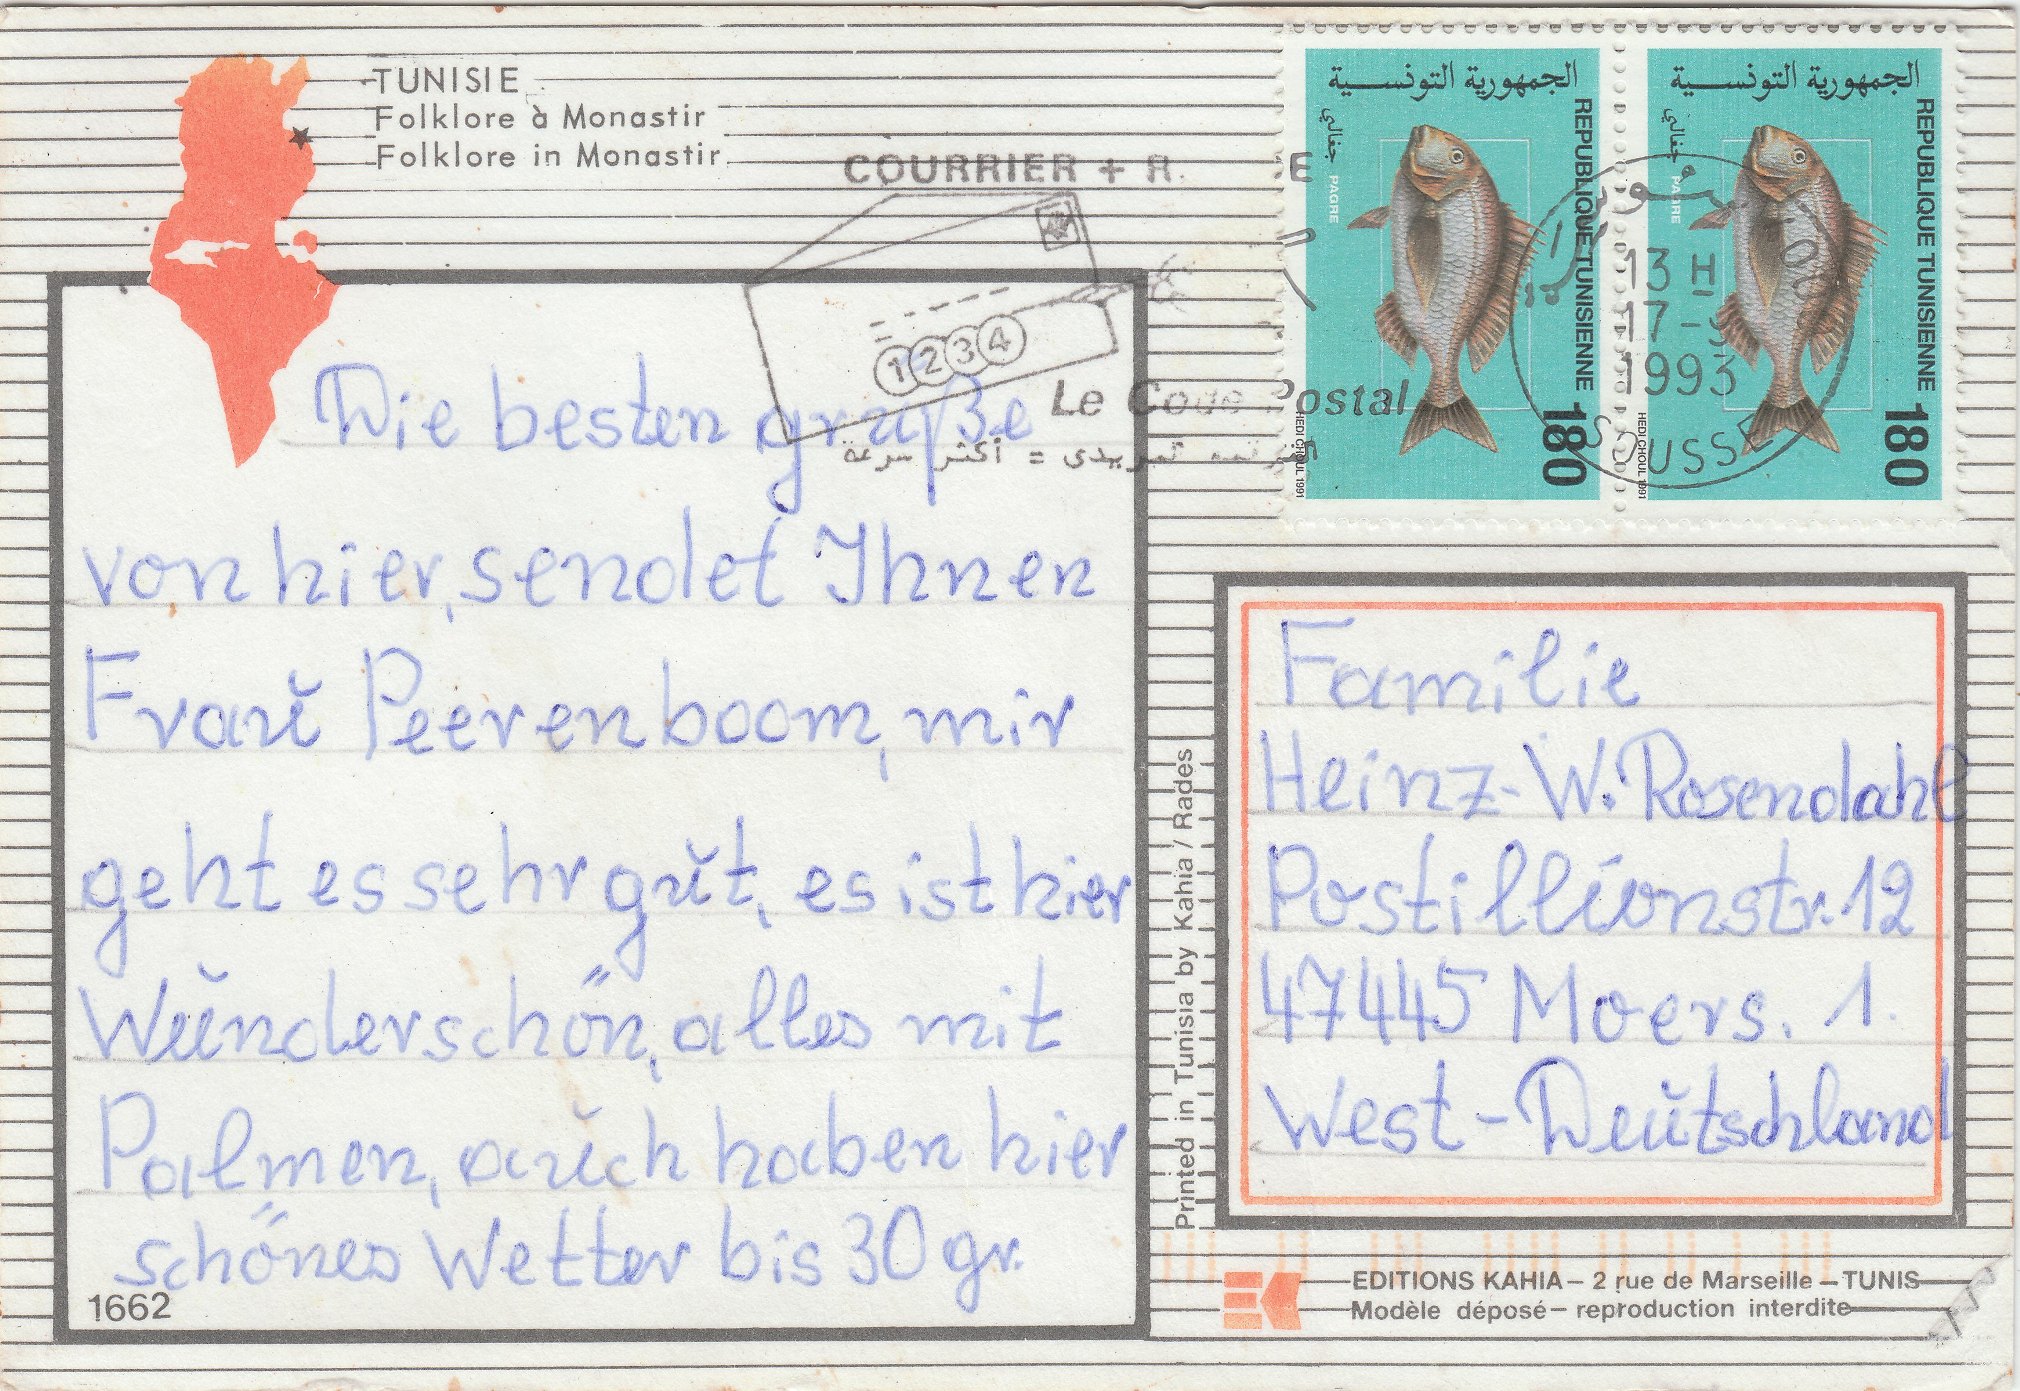 TUNISIE
Folklore à Monastir
Folklore in Monastir
COURRIER + R. E
1234
Le Code Postal
= أكثر سرعة
Die besten grüße
von hier, sendet Ihnen
Frau Peerenboom, mir
geht es sehr gut, es ist hier
Wunderschön, alles mit
Palmen, auch haben hier
schönes Wetter bis 30 gr.
1662
Printed in Tunisia by Kahia / Rades
الجمهورية التونسية
جغالي
PAGRE
REPUBLIQUE TUNISIENNE 180
HEDI CHOUL 1991
الجمهورية التونسية
جغالي
PAGRE
REPUBLIQUE TUNISIENNE 180
HEDI CHOUL 1991
سوسة
13 H
17 -
1993
SOUSSE
Familie
Heinz-W. Rosendahl
Postillionstr. 12
47445 Moers. 1.
West-Deutschland
EDITIONS KAHIA – 2 rue de Marseille – TUNIS
Modèle déposé – reproduction interdite